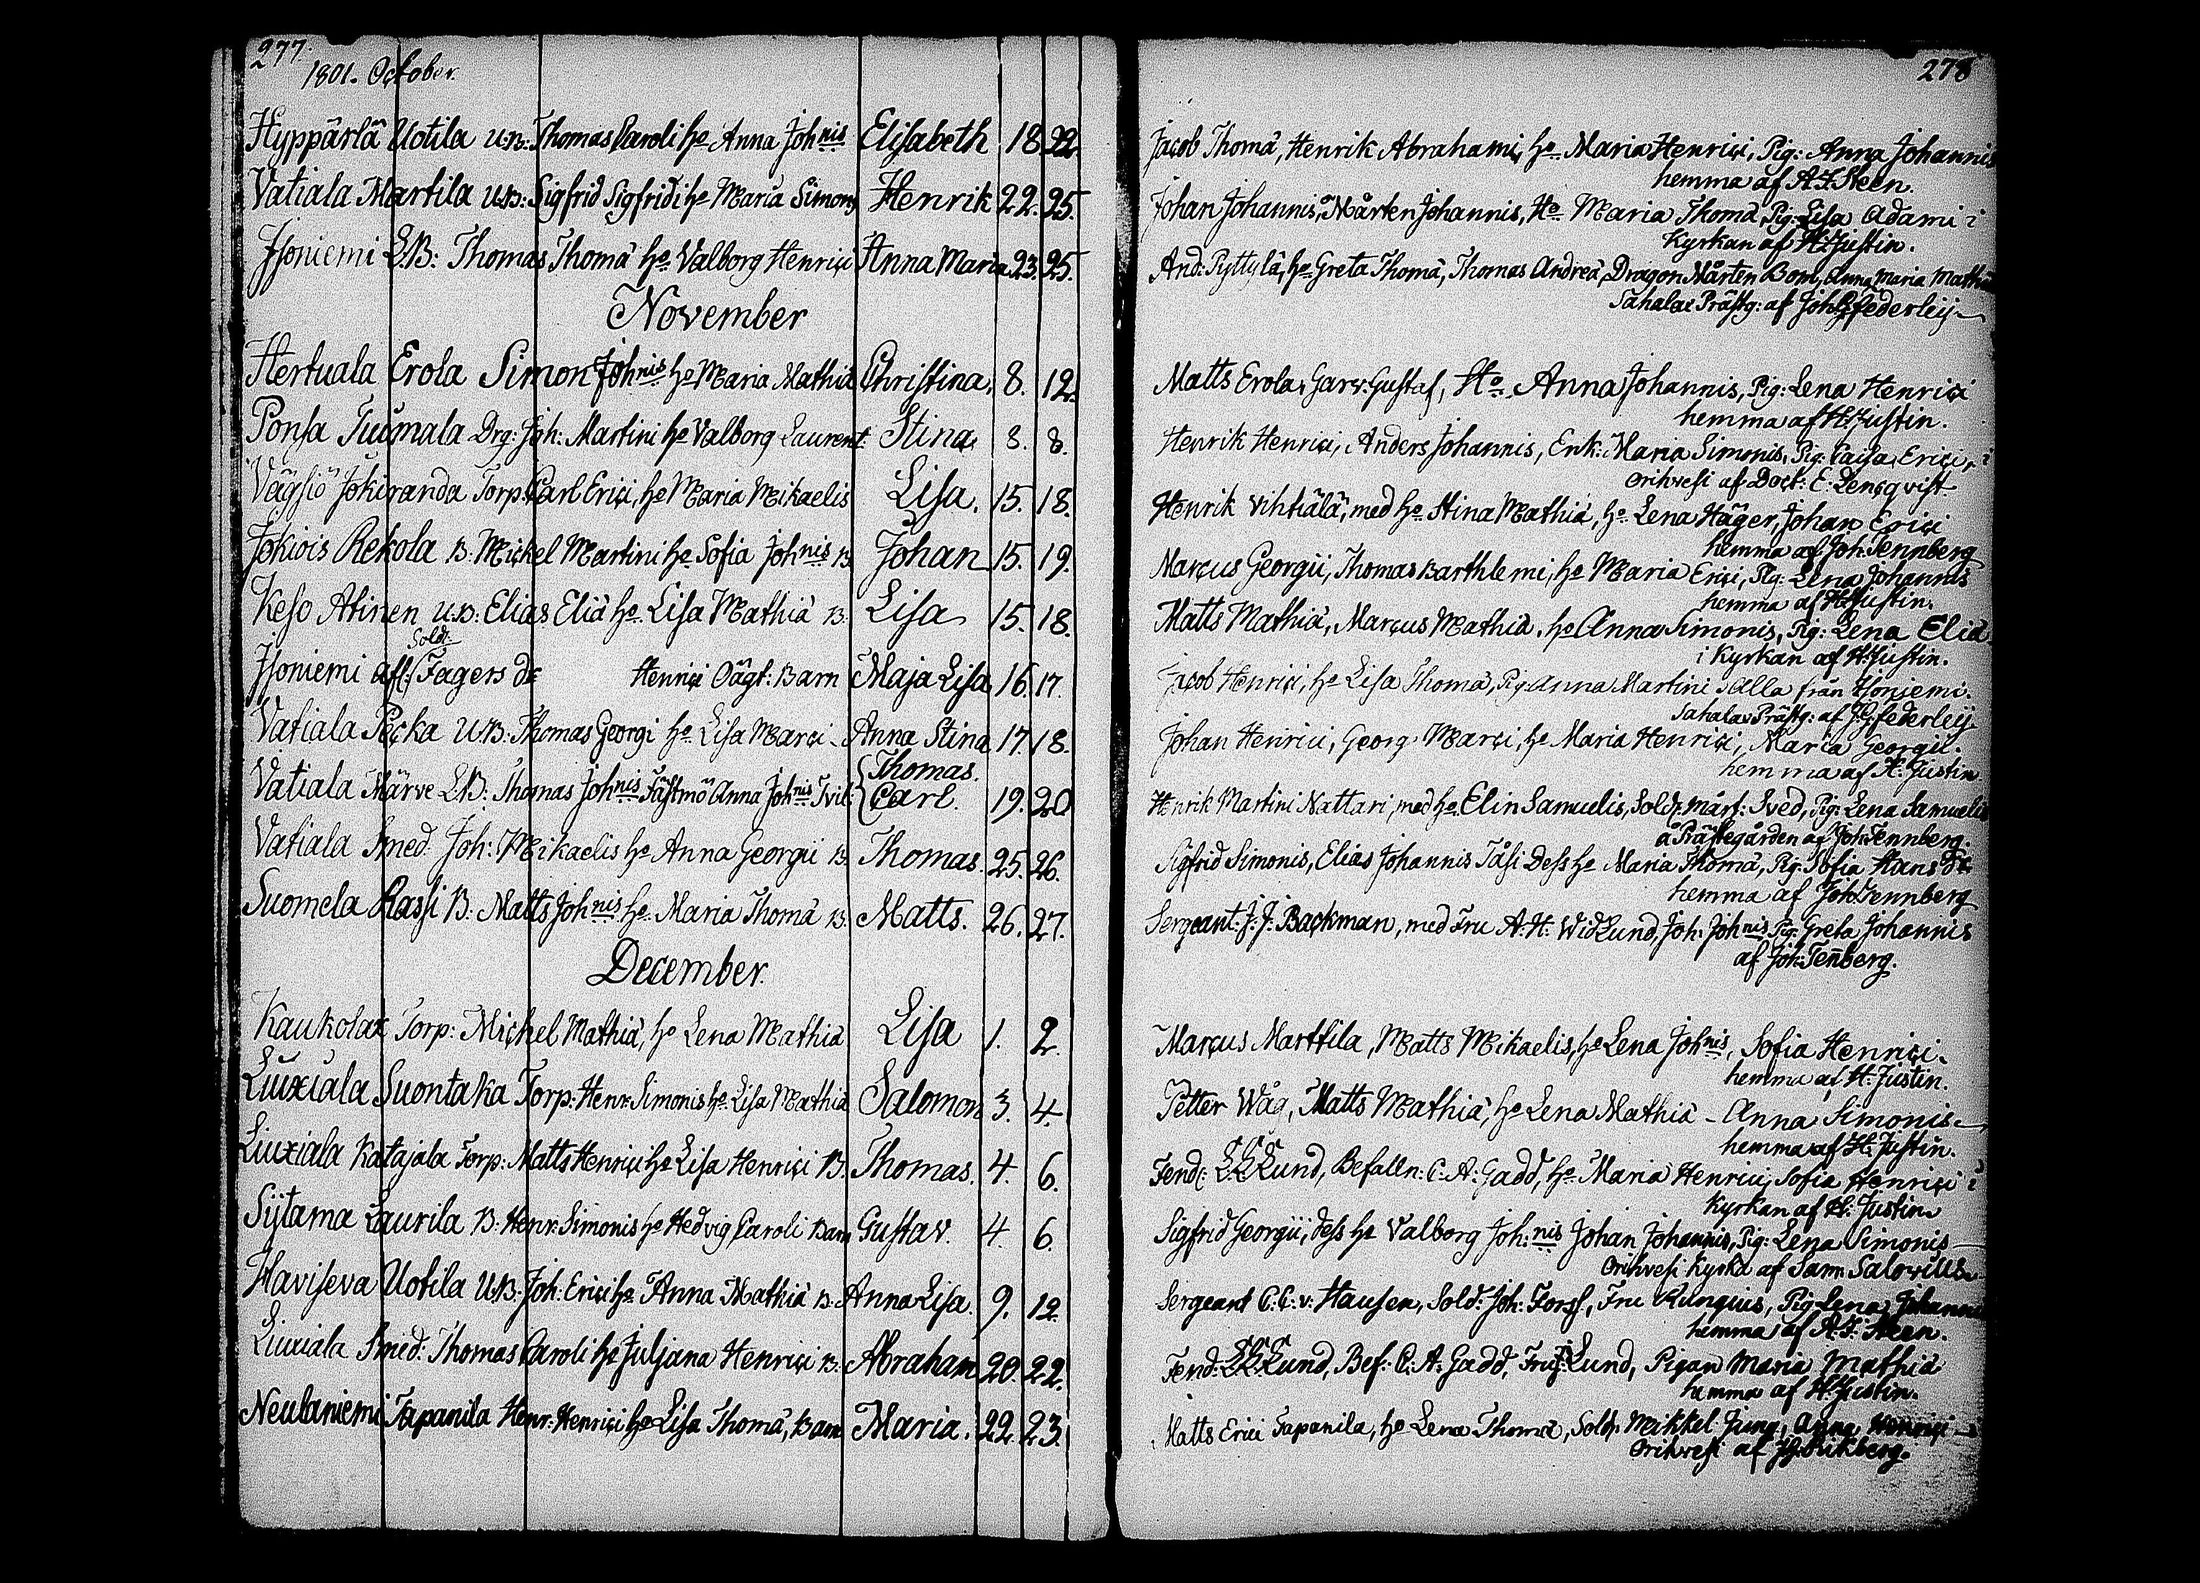 277.
1801. October.
Hyppärlä Uotila U.B: Thomas Caroli ho Anna Johnis Elisabeth 18. 22.
Vatiala Martila U.B: Sigfrid Sigfridi ho Maria Simonis Henrik 22. 25.
Isoniemi L.B: Thomas Thomä ho Valborg Henrici Anna Maria 23. 25.
November
Hertuala Erola Simon Johnis ho Maria Mathiä Christina, 8. 12.
Ponsa Tuomala Drg: Joh: Martini ho Valborg Laurent: Stina 8. 8.
Vägsiö Jokiranda Torp: Carl Erici, ho Maria Mikaelis Lisa. 15. 18.
Jokiois Rekola B: Michel Martini ho Sofia Johnis B. Johan 15. 19.
Keso Atinen U.B: Elias Eliä ho Lisa Mathiä B: Lisa 15. 18.
Isoniemi afl: Sold: Fagers dr Henrici Oägt: Barn Maja Lisa 16. 17.
Vatiala Pecka U.B: Thomas Georgi ho Lisa Marci - Anna Stina 17. 18.
Vatiala Märve L.B: Thomas Johnis Fästmö Anna Johnis Tvil: {Thomas. Carl. 19. 20
Vatiala Smed: Joh: Mikaelis ho Anna Georgii B. Thomas. 25. 26.
Suomela Rassi B: Matts Johnis ho Maria Thomä B: Matts. 26. 27.
December.
Kaukola Torp: Michel Mathiä, ho Lena Mathiä Lisa 1. 2.
Liuxiala Suontaka Torp: Henr: Simonis ho Lisa Mathiä Salomon 3. 4.
Liuxiala Katajala Torp: Matts Henrici ho Lisa Henrici B. Thomas. 4. 6.
Sytama Laurila B: Henr: Simonis ho Hedvig Caroli Barn Gustav. 4. 6.
Haviseva Uotila U.B: Joh: Erici ho Anna Mathiä B: Anna Lisa. 9. 12.
Liuxiala Smed: Thomas Caroli ho Juljana Henrici B: Abraham 20. 22.
Neulaniemi Tapanila Henr: Henrici ho Lisa Thomä, Barn Maria. 22. 23.
278
Jacob Thomä, Henrik Abrahami, ho Maria Henrici, Pig: Anna Johannis
hemma af A.F. Steen.
Johan Johannis, Mårten Johannis, Ho Maria Thomä, Pig: Lisa Adami i
Kyrkan af H. Justin.
And: Pyttylä, ho Greta Thomä, Thomas Andreä, Dragon Mårten Bom, Anna Maria Mathiä
Sahalax Prästg: af Joh. G. Federley
Matts Erola, Garv: Gustaf, Ho Anna Johannis, Pig: Lena Henrici
hemma af H. Justin.
Henrik Henrici, Anders Johannis, Enk: Maria Simonis, Pig: Caisa Erici, i
Orihvesi af Doct: E. Lencqvist
Henrik Vihtiälä, med ho Stina Mathiä, ho Lena Häger, Johan Erici
hemma af Joh: Tennberg
Marcus Georgii, Thomas Barthlemi, ho Maria Erici, Pig: Lena Johannis
hemma af H. Justin.
Matts Mathiä, Marcus Mathiä, ho Anna Simonis, Pig: Lena Eliä
i Kyrkan af H. Justin.
Jacob Henrici, ho Lisa Thomä, Pig: Anna Martini, Alla från Isoniemi.
Sahalax Prästg: af J.G. Federley
Johan Henrici, Georg Marci, ho Maria Henrici, Maria Georgii.
hemma af H. Justin
Henrik Martini Nattari, med ho Elin Samuelis, Sold: Mårt: Sved, Pig: Lena Samuelis
å Prästegården af Joh: Tennberg.
Sigfrid Simonis, Elias Johannis Täsi Dess ho Maria Thomä, Pig: Sofia Hans dr
hemma af Joh: Tennberg
Sergeant: J.J. Backman, med Fru A.H. Widlund, Joh: Johnis Pig: Greta Johannis
af Joh: Tenberg.
Marcus Marttila, Matts Mikaelis, ho Lena Johnis, Sofia Henrici
hemma af H. Justin.
Petter Wåg, Matts Mathiä, ho Lena Mathiä - Anna Simonis
hemma af H. Justin.
Fend: E.G. Lund, Befalln: C.A. Gadd, ho Maria Henrici, Sofia Henrici i
Kyrkan af H. Justin
Sigfrid Georgii, dess ho Valborg Joh:nis Johan Johannis, Pig: Lena Simonis
Orihvesi Kyrka af Sam Salovius
Sergeant C.C. v: Hausen, Sold: Joh: Forss, Fru Kunquius, Pig: Lena Johannis
hemma af A.F. Steen.
Fend: E.G. Lund, Bef: C: A: Gadd, Fru Lund, Pigan Maria Mathiä
hemma af H. Justin.
Matts Erici Tapanila, ho Lena Thomä, Sold: Mikkel Jung, Anna Henrici i
Orihvesi af Rikberg.